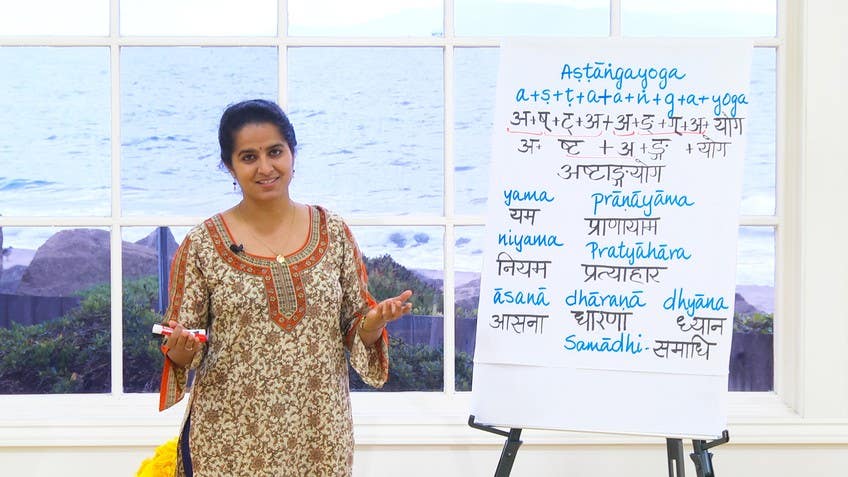 Aṣṭāṅgayoga
a+ṣ+ṭ+a+a+ṅ+g+a+yoga
अ+ष्+ट्+अ+अ+ङ्+ग्+अ+योग
अ ष्ट + अ+ङ्ग +योग
अष्टाङ्गयोग
yama prāṇāyāma
यम प्राणायाम
niyama Pratyāhāra
नियम प्रत्याहार
āsanā dhāraṇā dhyāna
आसना धारणा ध्यान
Samādhi - समाधि